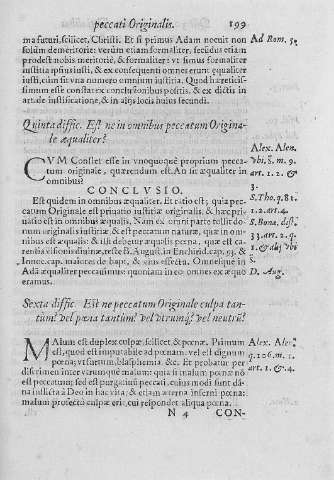 peccati Originalis. 199
ma futuri, scilicet, Christi. Et si primus Adam nocuit non
solùm demeritoriè: verùm etiam formaliter, secūdus etiam
prodest nobis meritoriè, & formaliter: vt simus formaliter
iustitia ipsius iusti, & ex consequenti omnes erunt æqualiter
iusti, cùm sit vna numero omnium iustitia. Quod hæreticis-
simum esse constat ex conclusionibus positis, & ex dictis in
art. de iustificatione, & in alijs locis huius secundi.
Ad Rom. 5.
Quinta diffic. Est ne in omnibus peccatum Origina-
le æqualiter?
CVM Constet esse in vnoquoque proprium pecca-
tum originale, quærendum est. An sit æqualiter in
omnibus?
Alex. Alen.
vbi. s. m. 9.
art. 1. 2. &
3.
CONCLVSIO.
Est quidem in omnibus æqualiter. Et ratio est; quia pec-
catum Originale est priuatio iustitiæ originalis, & hæc pri-
uatio est in omnibus æqualis, Nam ex omni parte tollit do-
num originalis iustitiæ, & est peccatum naturæ, quæ in om-
nibus est æqualis: & isti debetur æqualis pœna, quæ est ca-
rentia visionis diuinæ, teste B. August. in Enchirid. cap. 93. &
Innoc. cap. maiores de bapt. & eius effectu. Omnes que in
Adã æqualiter peccauimus: quoniam in eo omnes ex æquo
eramus.
S. Tho. q. 82.
1. 2. art. 4.
S. Bona. dist.
33. art. 2. q.
1. & alij vbi
s.
D. Aug.
Sexta diffic. Est ne peccatum Originale culpa tan-
tùm? vel pœna tantùm? vel vtrumq;? vel neutrũ?
MAlum est duplex culpæ, scilicet, & pœnæ. Primum
est, quod est imputabile ad pœnam, vel est dignum
pœna; vt furtum, blasphemia, &c. Et probatur per
discrimen inter vtrumque malum: quia si malum pœnæ nõ
est peccatum; sed est purgatiuũ peccati, cuius modi sunt dã-
na inflicta à Deo in hac vita; & etiam æterna inferni pœna:
malum profectò culpæ erit, cui respondet aliqua pœna.
Alex. Ale.
q. 106. m. 1.
art. 1. & 4.
N 4 CON-